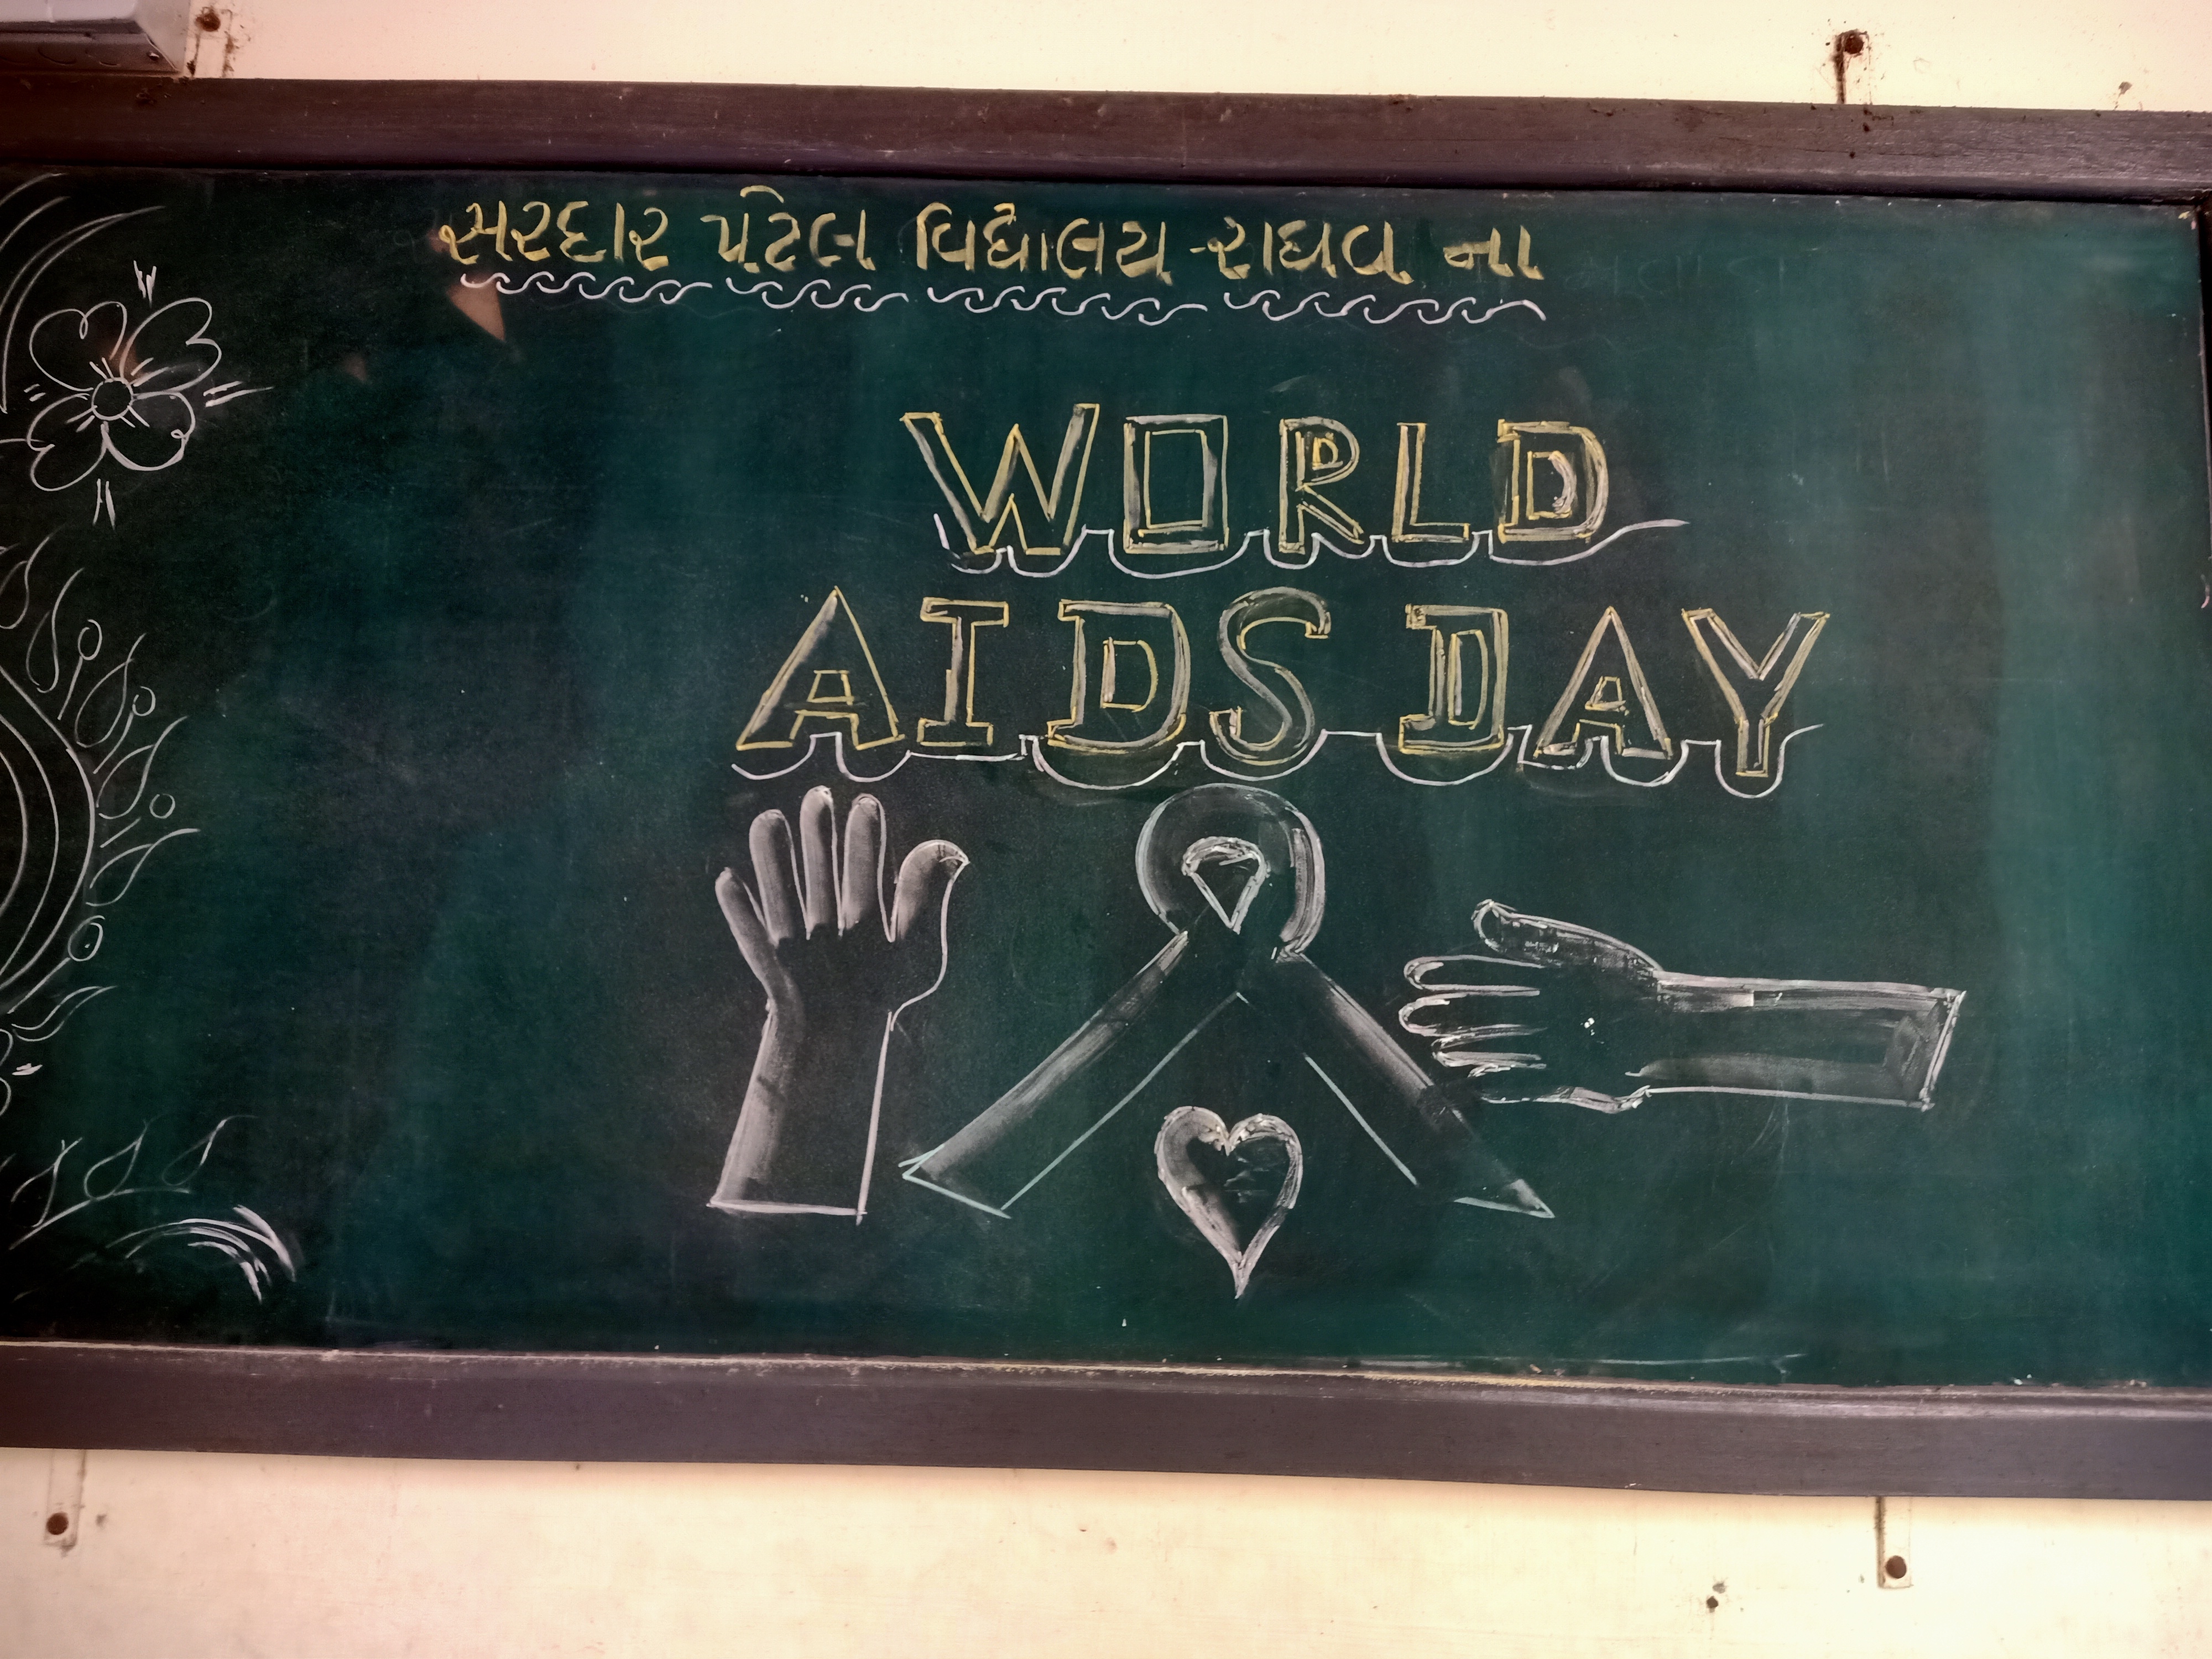 સરદાર પટેલ વિદ્યાલય રાઘવ ના
WORLD
AIDS DAY